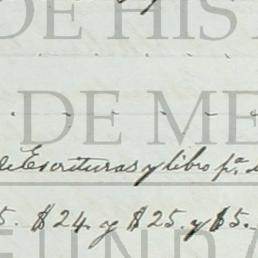 DE HIS
DE ME
de Escrituras y libro p.ª
5. $24. y $25. y $5.
FUNDA